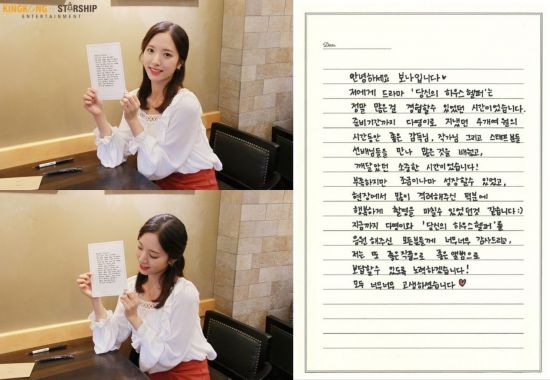 KINGKONG BY STARSHIP
ENTERTAINMENT
Dear.
안녕하세요 보나입니다♥
저에게 드라마 '당신의 하우스헬퍼'는
정말 많은걸 경험할수 있었던 시간이었습니다.
준비기간까지 다영이로 지냈던 수개여월의
시간동안 좋은 감독님, 작가님 그리고 스태프분들
선배님들을 만나 많은것을 배웠고,
깨달았던 소중한 시간이었습니다!
부족하지만 조금이나마 성장할수 있었고,
현장에서 많이 격려해주신 덕분에
행복하게 촬영을 마칠수 있었던것 같습니다:)
지금까지 다영이와 '당신의 하우스헬퍼'를
응원해주신 모든분들께 너무너무 감사드리고,
저는 또 좋은작품으로 좋은 앨범으로
보답할수 있도록 노력하겠습니다!
모두 너무너무 고생하셨습니다♥